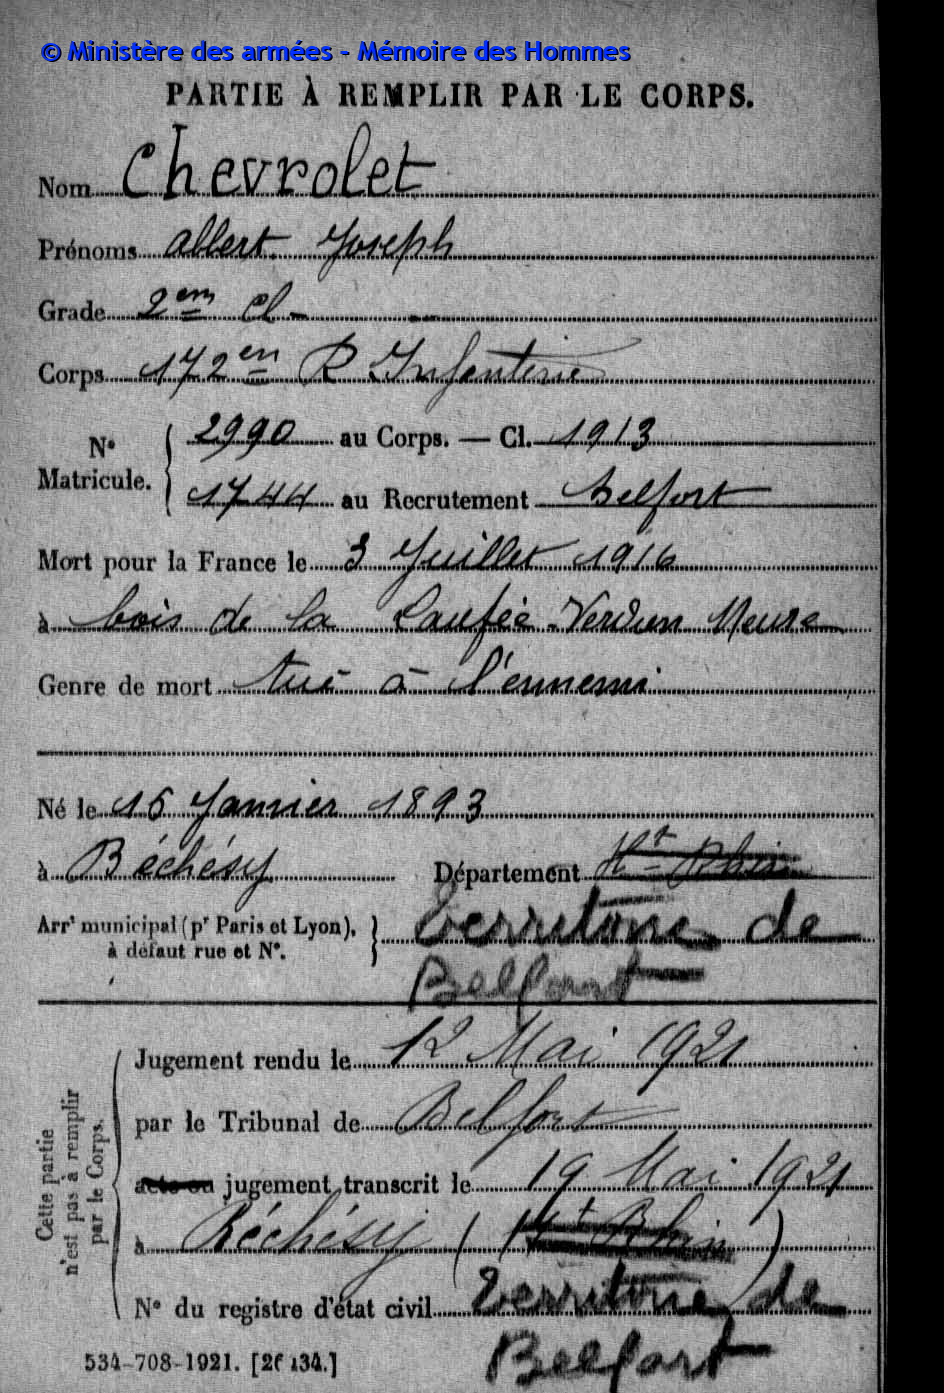 © Ministère des armées - Mémoire des Hommes
PARTIE À REMPLIR PAR LE CORPS.
Nom Chevrolet
Prénoms Albert Joseph
Grade 2em Cl -
Corps 172en R Infanterie
N° Matricule. 2990 au Corps. — Cl. 1913
1744 au Recrutement Belfort
Mort pour la France le 3 Juillet 1916
à bois de la Laufée - Verdun Meuse
Genre de mort tué à l'ennemi
Né le 16 Janvier 1893
à Béchésy Département Ht Rhin
Arrt municipal (pr Paris et Lyon), à défaut rue et N°. Territoire de
Belfort
Cette partie n'est pas à remplir par le Corps.
Jugement rendu le 12 Mai 1921
par le Tribunal de Belfort
acte ou jugement transcrit le 19 Mai 1921
à Réchésy (Ht Rhin)
N° du registre d'état civil Territoire de
Belfort
534-708-1921. [26434.]